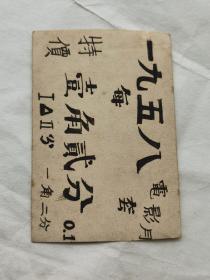 一九五八
電影片
每套
特價
壹角貳分
一角二分
0.1